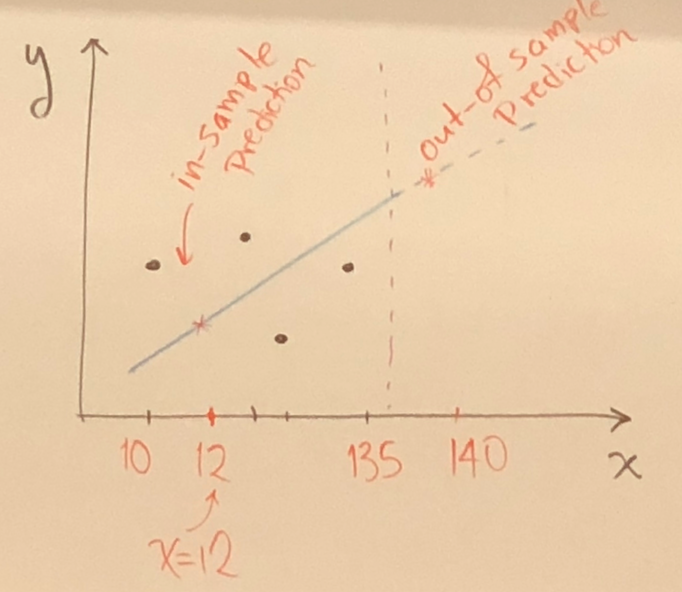 y
in-sample
Prediction
out-of sample
Prediction
10
12
135
140
x
x=12